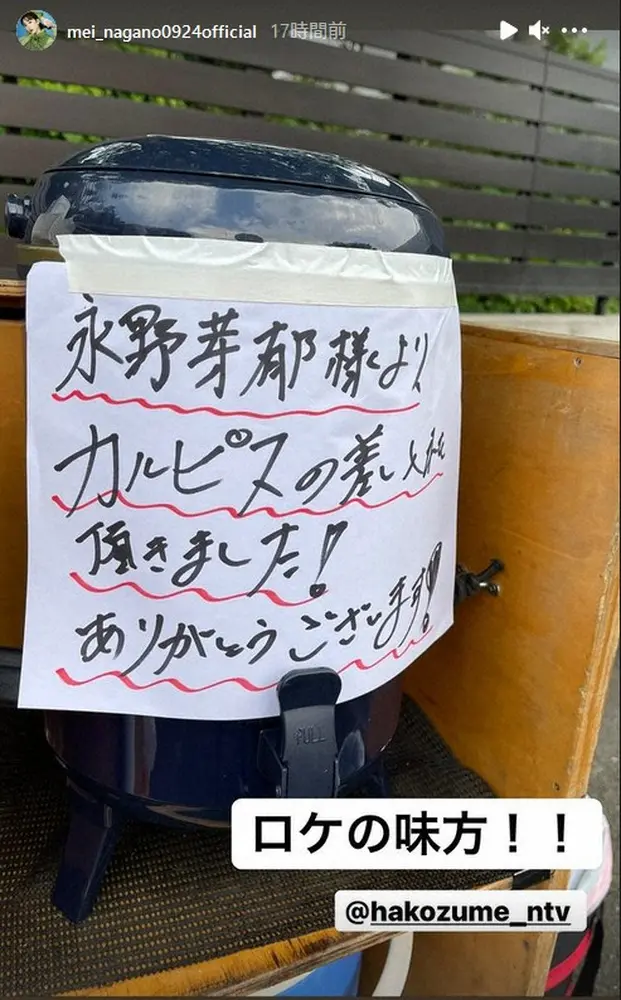 mei_nagano0924official 17時間前
永野芽郁様より
カルピスの差し入れを
頂きました!
ありがとうございます!!
PULL
ロケの味方!!
@hakozume_ntv